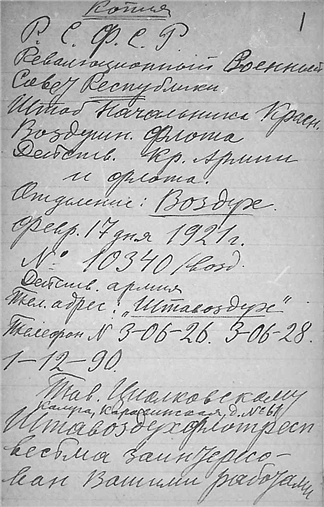 Копия
1
Р. С. Ф. С. Р
Революционный Военный
Совет Республики
Штаб Начальника Красн.
Воздушн. Флота
Действ. Кр. Армии
и флота.
Отделение: Воздух.
Февр. 17 дня 1921 г.
№ 10340/возд.
Действ. армия
Тел. адрес. „Штавоздух"
Телефон № 3-06-26. 3-06-28.
1-12-90.
Тов. Циолковскому
Калуга, Коровинская, д. № 61
Штавоздухфлотресп
весьма заинтересо-
ван Вашими работами